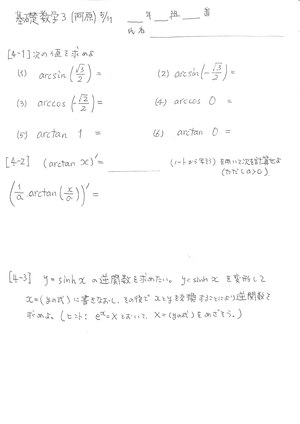 基礎数学3 (阿原) 5/11 ___年___組___番
氏名
[4-1] 次の値を求めよ
(1) arcsin(√3/2) = (2) arcsin(-√3/2) =
(3) arccos(-√2/2) = (4) arccos 0 =
(5) arctan 1 = (6) arctan 0 =
[4-2] (arctan x)' = ______ (ノートから写そう) を用いて次を計算せよ
(ただし a>0)
(1/a arctan(x/a))' =
[4-3] y = sinh x の逆関数を求めたい。 y = sinh x を変形して
x = (yの式) に書きなおし、その後で xとyを交換することにより逆関数を
求めよ。(ヒント: eˣ = X とおいて、X = (yの式) をめざそう。)